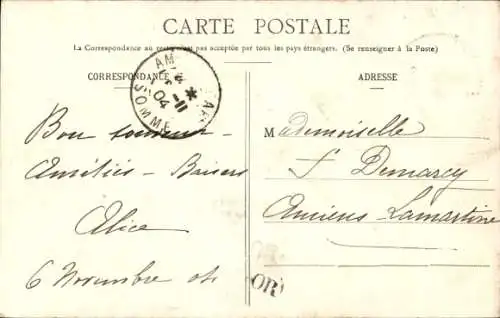 CARTE POSTALE
La Correspondance au recto n'est pas acceptée par tous les pays étrangers. (Se renseigner à la Poste)
CORRESPONDANCE
ADRESSE
SOMME
11
04
Bon souvenir -
Amitiés - Baisers
Alice
6 Novembre 04
Mademoiselle
F Demarcy
Amiens Lamartine
OR